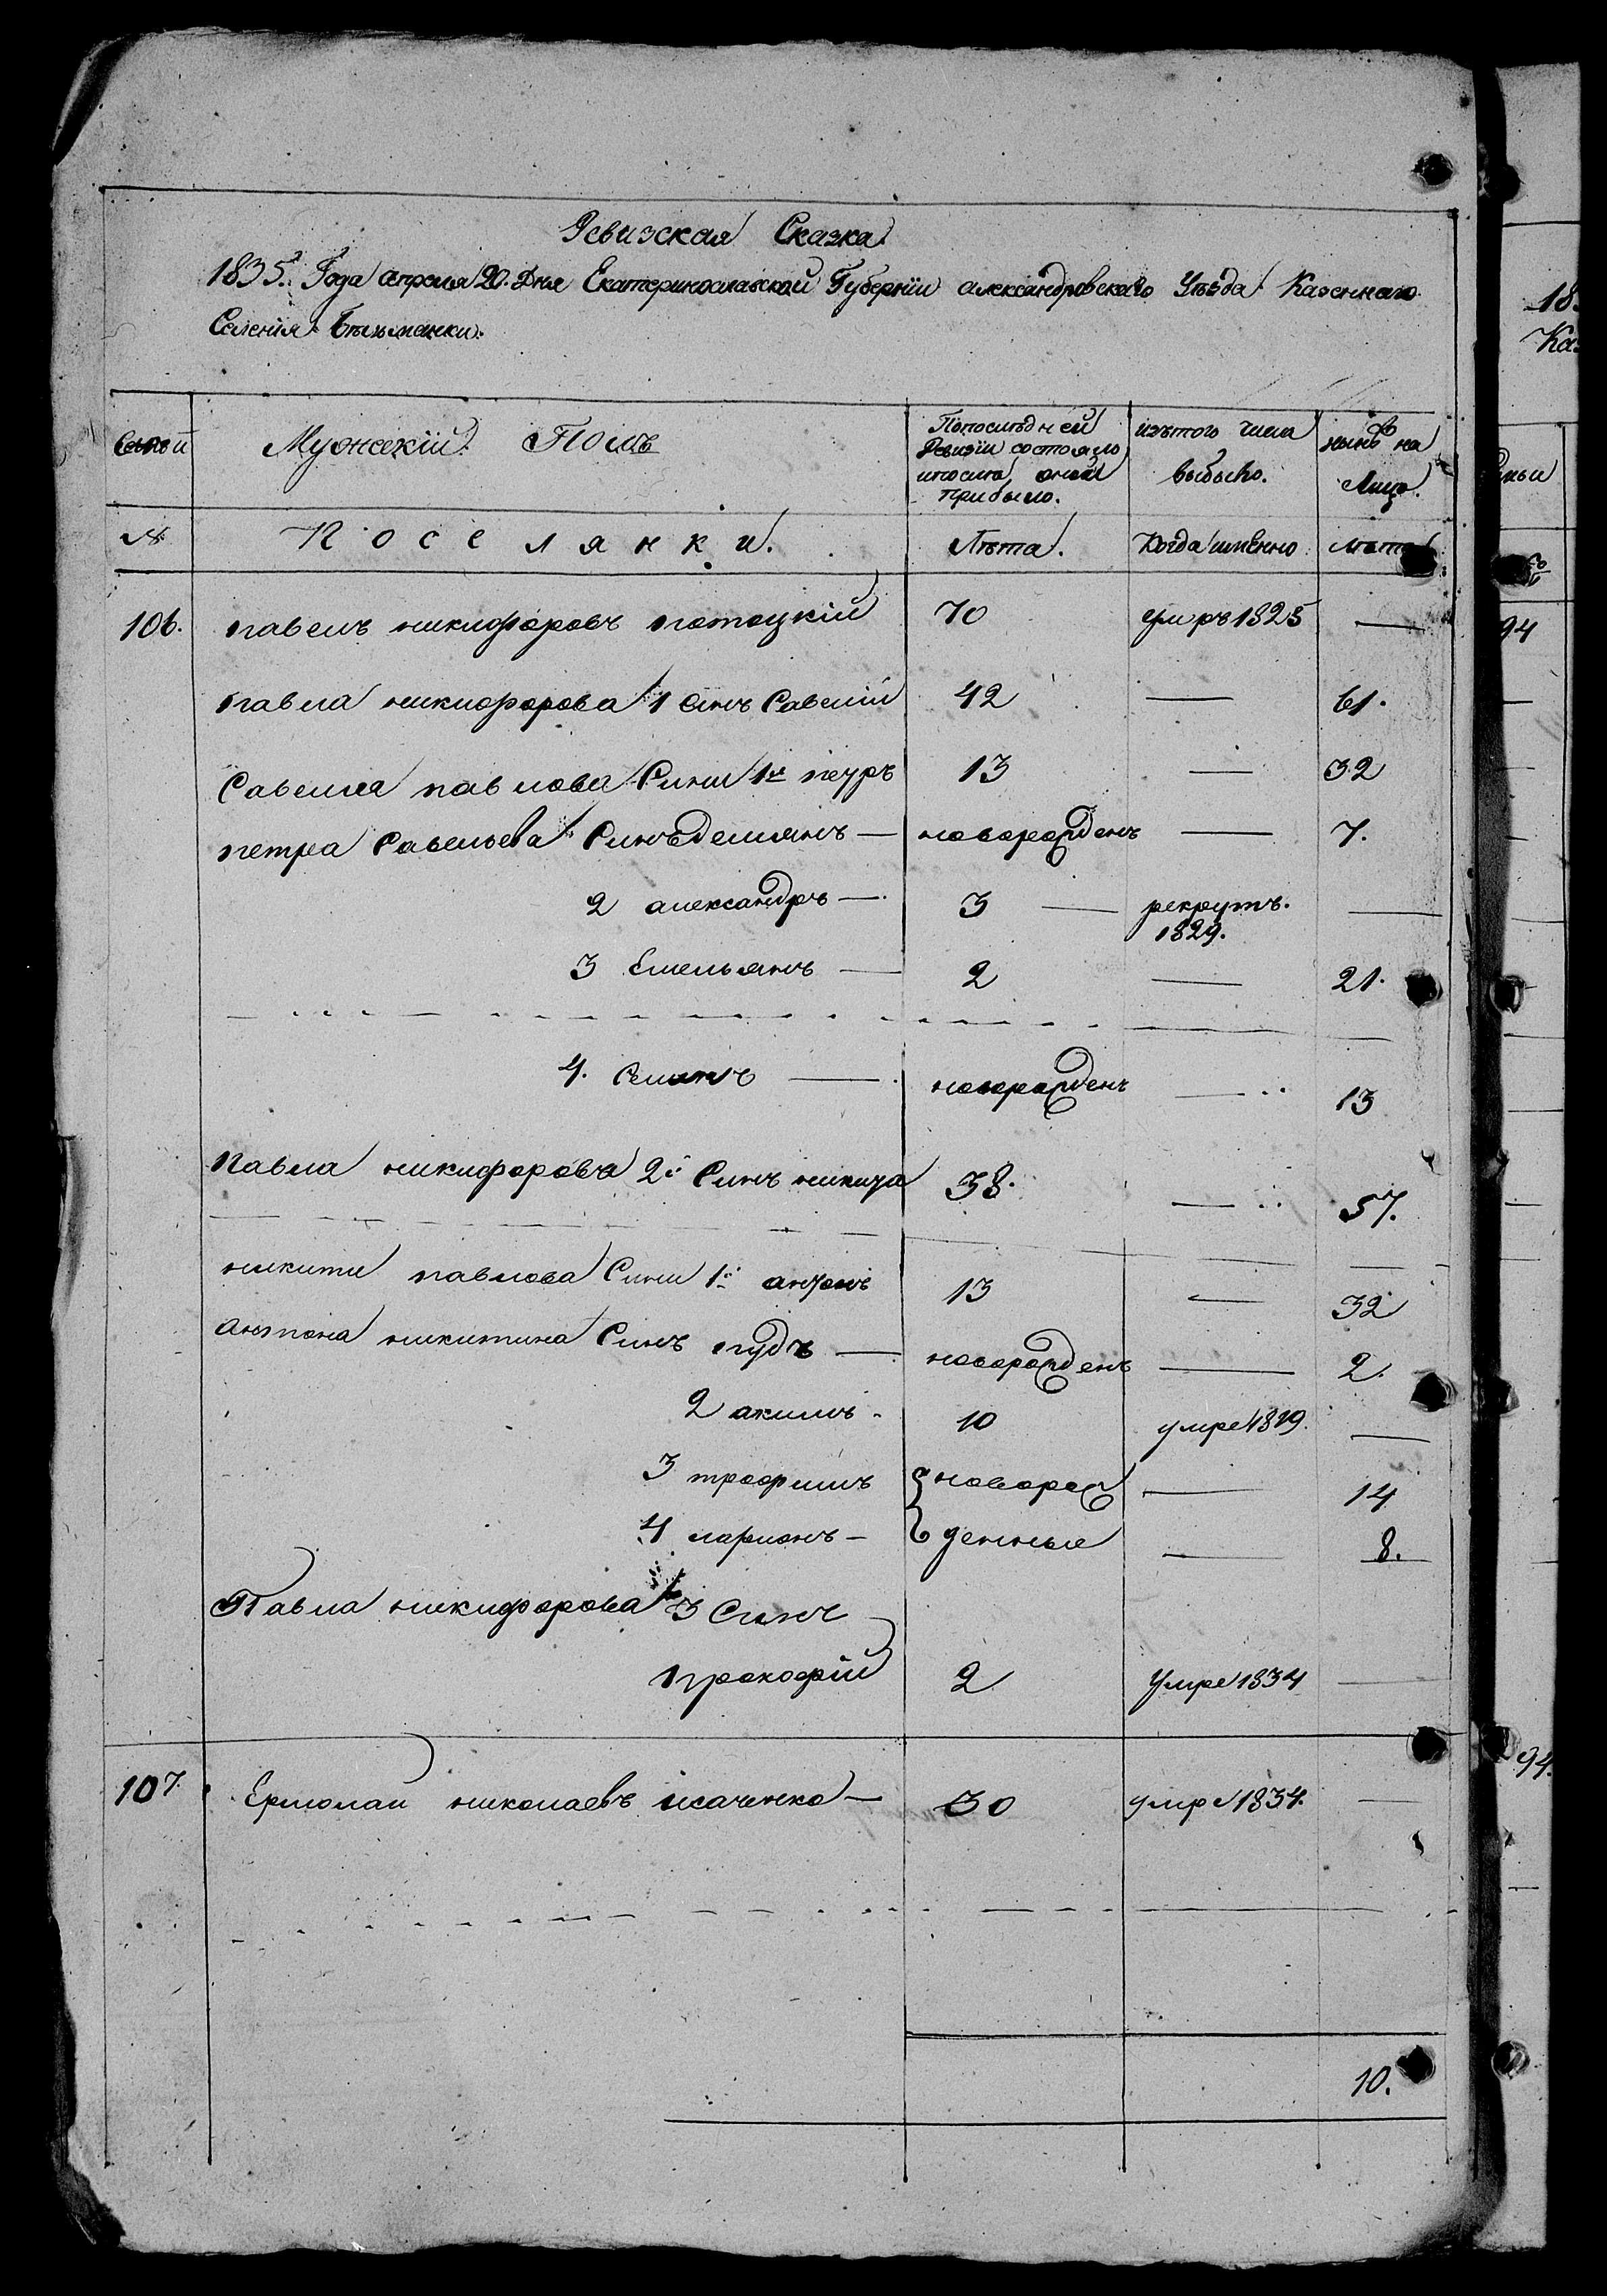 Ревизская Сказка
1835. Года апреля 20. Дня Екатеринославской Губернїи александровскаго Уѣзда Казеннаго
Селенія Бѣльманки.
Мужескїй Полъ
По послѣдней Ревизїи состояло и после оной прибыло.
изъ того числа выбыло.
нынѣ на Лицо.
№
Поселянки.
Лѣта.
Когда именно
лѣта
106. павелъ никифоровъ потоцкїй 70 умръ 1825 —
павла никифорова 1 синъ Савелїй 42 — 61.
Савелия павлова Сини 1й петръ 13 — 32
петра Савельева Синъ демянъ — новорожденъ — 7.
2 александръ — 3 — рекрутъ. 1829. —
3 Емельянъ — 2 — 21.
4. Семенъ — новорожденъ — 13
Павла никифорова 2й Синъ никита 38. — 57.
никити павлова Сини 1й антонъ 13 — 32
Антона никитина Синъ пудъ — новорожденъ — 2.
2 акимъ 10 умре 1819. —
3 трофимъ новорож — 14
4 ларионъ — денные — 8.
Павла никифорова 3 Синъ
прокофїй 2 Умре 1834 —
107. Ермолаи николаевъ исаченко — 30 умре 1834. —
10.
18
Ка
94
94.